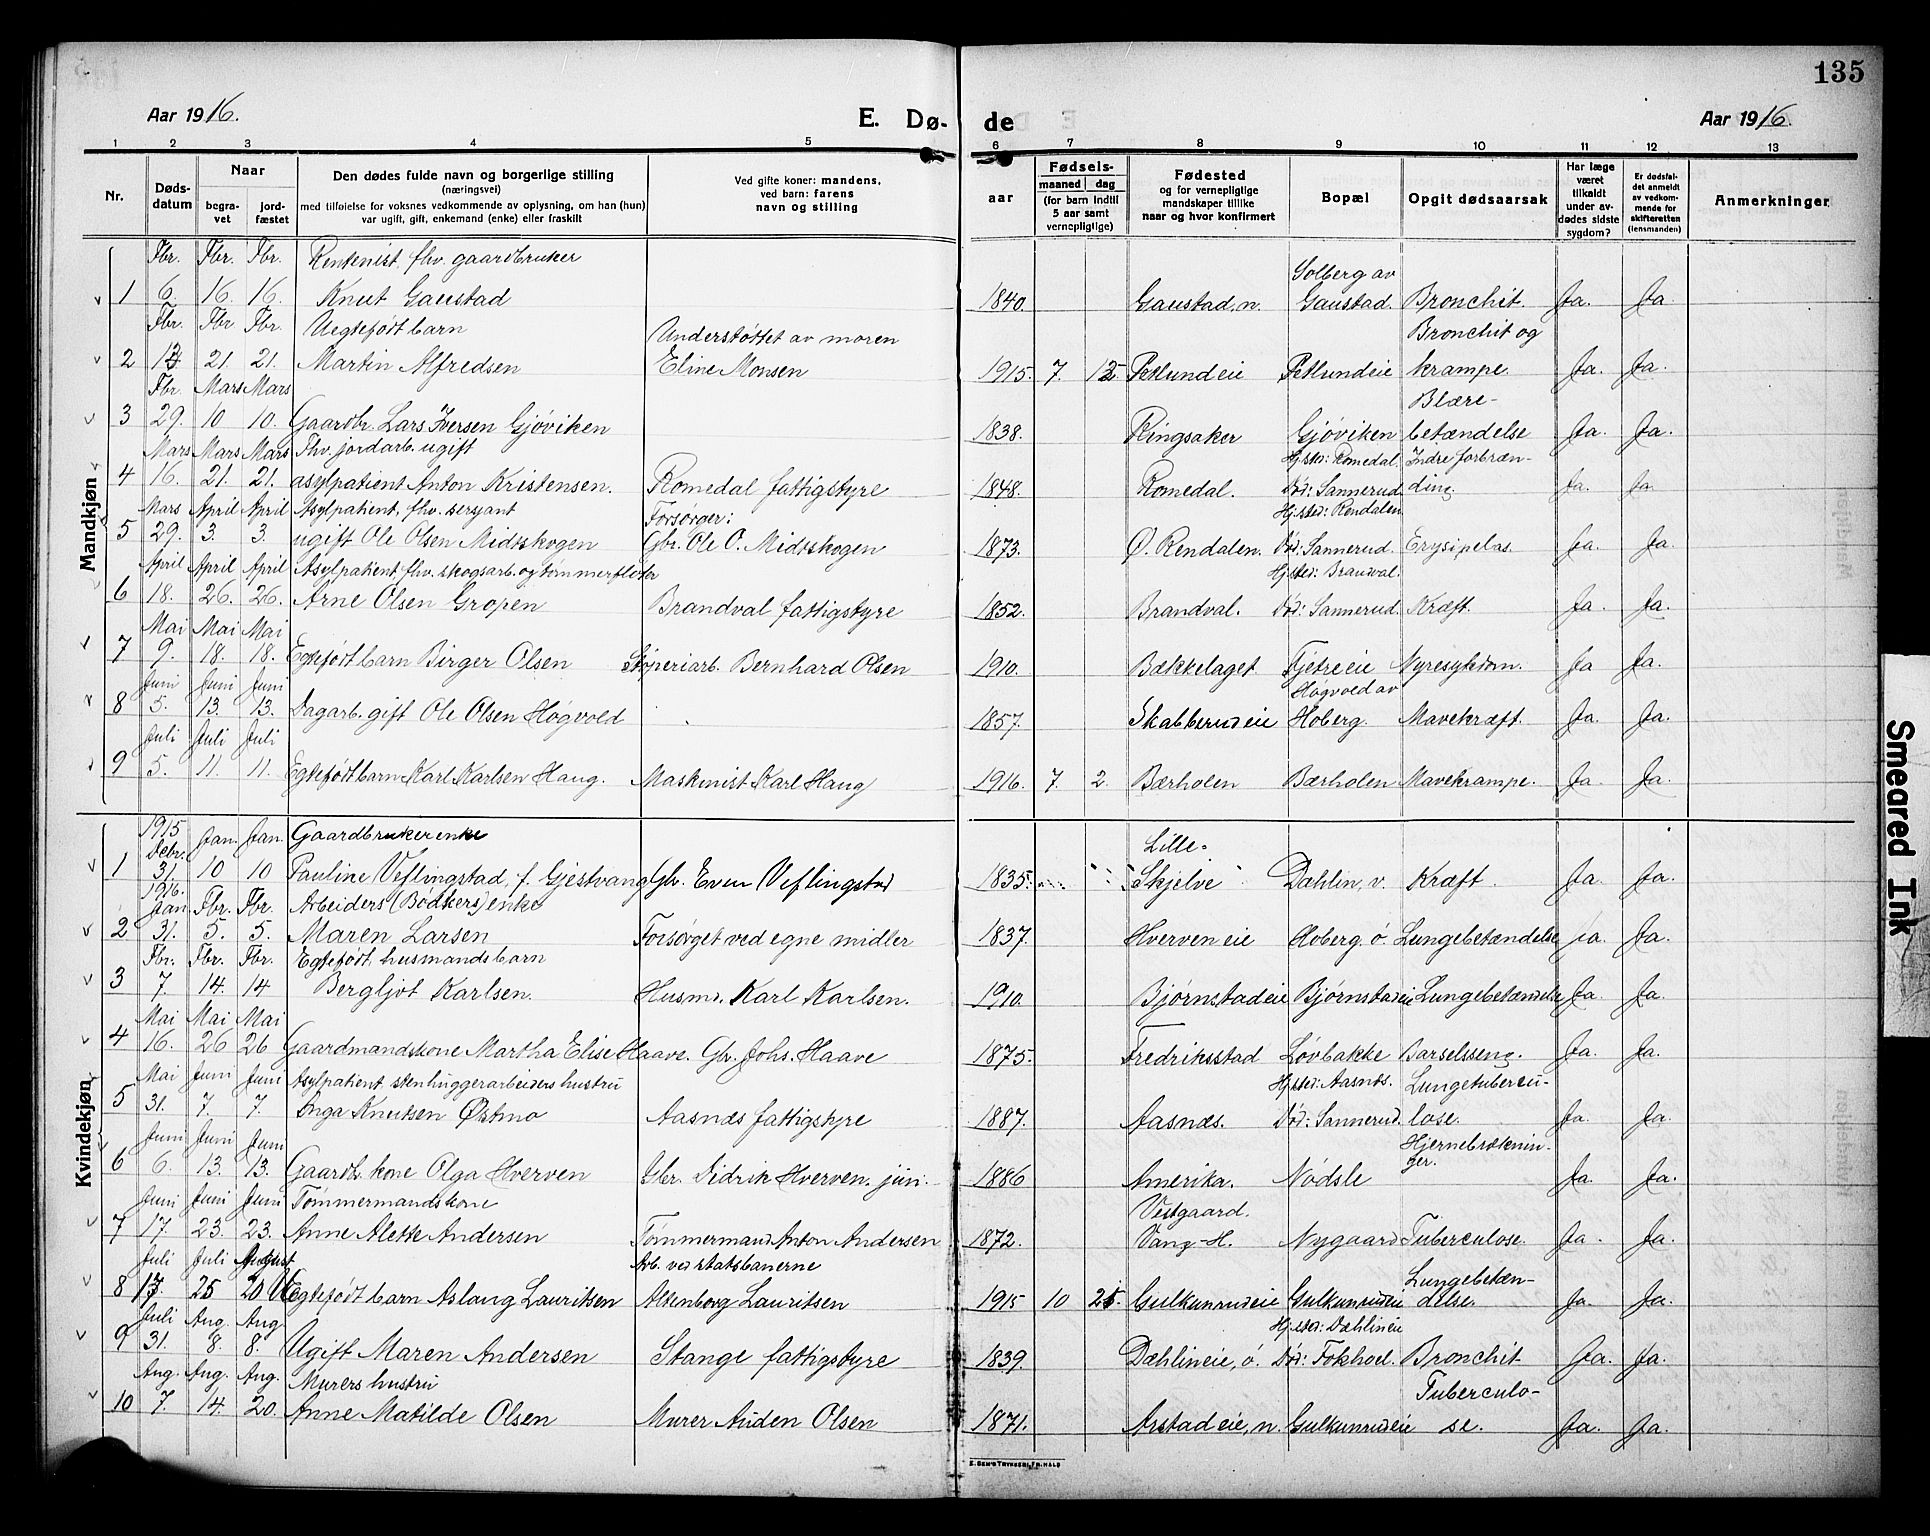 135
Aar 1916.
E. Dø-
de
Aar 1916.
1 2 3 4 5 6 7 8 9 10 11 12 13
Nr.
Døds-
datum
Naar
begra-
vet
jord-
fæstet
Den dødes fulde navn og borgerlige stilling
(næringsvei)
med tilføielse for voksnes vedkommende av oplysning, om han (hun)
var ugift, gift, enkemand (enke) eller fraskilt
Ved gifte koner: mandens,
ved barn: farens
navn og stilling
Fødsels-
aar
maaned
dag
(for barn indtil
5 aar samt
vernepligtige)
Fødested
og for vernepligtige
mandskaper tillike
naar og hvor konfirmert
Bopæl
Opgit dødsaarsak
Har læge
været
tilkaldt
under av-
dødes sidste
sygdom?
Er dødsfal-
det anmeldt
av vedkom-
mende for
skifteretten
(lensmanden)
Anmerkninger
Mandkjøn
Fbr. Fbr. Fbr. Rentenist, fhv. gaardbruker
Solberg av
1 6. 16. 16. Knut Gaustad 1840. Gaustad, n. Gaustad. Bronchit. Ja. Ja
Fbr. Fbr. Fbr. Uegtefødt barn Understøttet av moren Bronchit og
2 21. 21. Martin Alfredsen Eline Monsen 1915. 7. Ja. Ja.
krampe.
Fbr. Mars Mars Blære-
3 29. 10 10. Gaardbr. Lars Iversen Gjøviken 1838. Ringsaker Gjøviken betændelse Ja. Ja.
Mars Mars Mars Fhv. jordarb. ugift Hjsted: Romedal. Indre forbræn-
4 16. 21. 21. asylpatient Anton Kristensen. Romedal fattigstyre 1848. Romedal. Død: Sannerud. ding. Ja. Ja.
Mars April April Asylpatient, fhv. sersjant Forsørger: Hjsted: Rendalen
5 29. 3. 3. ugift Ole Olsen Midtskogen Gbr. Ole O. Midtskogen 1873. Ø. Rendalen. Død: Sannerud. Erysipelas. Ja. Ja.
April April April Asylpatient fhv. skogsarb. og tømmerfløter Hjsted: Brandval.
6 18. 26. 26. Arne Olsen Gropen Brandval fattigstyre 1852. Brandval. Død: Sannerud. Kræft. Ja. Ja.
Mai Mai Mai
7 9. 18. 18. Egtefødt barn Birger Olsen Støperiarb. Bernhard Olsen 1910. Bækkelaget Tjetreeie Nyresykdom. Ja Ja.
Juni Juni Juni Høgvold av
8 5. 13. 13. Dagarb. gift Ole Olsen Høgvold 1857. Skabberudeie Hoberg. Mavekræft. Ja. Ja.
Juli Juli Juli
9 5. 11. 11. Egtefødt barn Karl Karlsen Haug. Maskinist Karl Haug 1916. 7. 2. Bærholen Bærholen Mavekrampe. Ja. Ja.
Kvindekjøn
1915
Debr. Jan. Jan. Gaardbrukerenke Lille-
1 31. 10 10 Pauline Veflingstad, f. Gjestvang Gbr. Even Veflingstad 1835. Skjelve Dæhlin, v. Kræft. Ja. Ja.
1916.
Jan Fbr. Fbr. Arbeiders (Bødkers) enke
2 31. 5. 5. Maren Larsen Forsørget ved egne midler 1837. Hverven eie Hoberg, ø. Lungebetændelse ja. Ja.
Fbr. Fbr. Fbr. Egtefødt husmandsbarn
3 7 14. 14 Bergljot Karlsen. Husmd. Karl Karlsen. 1910. Bjørnstadeie Bjørnstadeie Lungebetændelse Ja. Ja.
Mai Mai Mai
4 16. 26 26 Gaardmandskone Martha Elise Haave. Gbr. Johs. Haave 1875. Fredriksstad Løvbakke Barselsseng. Ja. Ja.
Mai Juni Juni Asylpatient, stenhuggerarbeiders hustru Hjsted: Aasnæs. Lungetubercu-
5 31. 7. 7. Inga Knutsen Østmo Aasnæs fattigstyre 1887. Aasnæs. Død: Sannerud. lose. Ja. Ja.
Juni Juni Juni Hjernebrækнin-
6 6. 13. 13. Gaardb. kone Olga Hverven Gbr. Didrik Hverven, jun. 1886 Amerika. Nødsle ger. Ja. Ja.
Juni Juni Juni Tømmermandskone Vestgaard.
7 17. 23. 23. Anne Alette Andersen Tømmermand Anton Andersen 1872. Vang-H. Nygaard Tuberculose. Ja. Ja.
Juli Juli August Arb. ved statsbanerne Lungebetæn-
8 25 20 Egtefødt barn Aslaug Lauritsen Altenborg Lauritsen 1915 10 Gulkunrudeie Gulkunrudeie delse. Ja. Ja.
Juli Aug. Aug Hjsted: Dæhlineie
9 31. 8. 8. Ugift Maren Andersen Stange fattigstyre 1839. Dæhlineie, ø. Død: Fokhoel. Bronchit Ja. Ja.
Aug. Aug. Aug. Murers hustru Tuberculo-
10 7. 14. 20. Anne Matilde Olsen Murer Auden Olsen 1871. Arstad eie, n. Gulkunrudeie se. Ja. Ja.
Smeared Ink